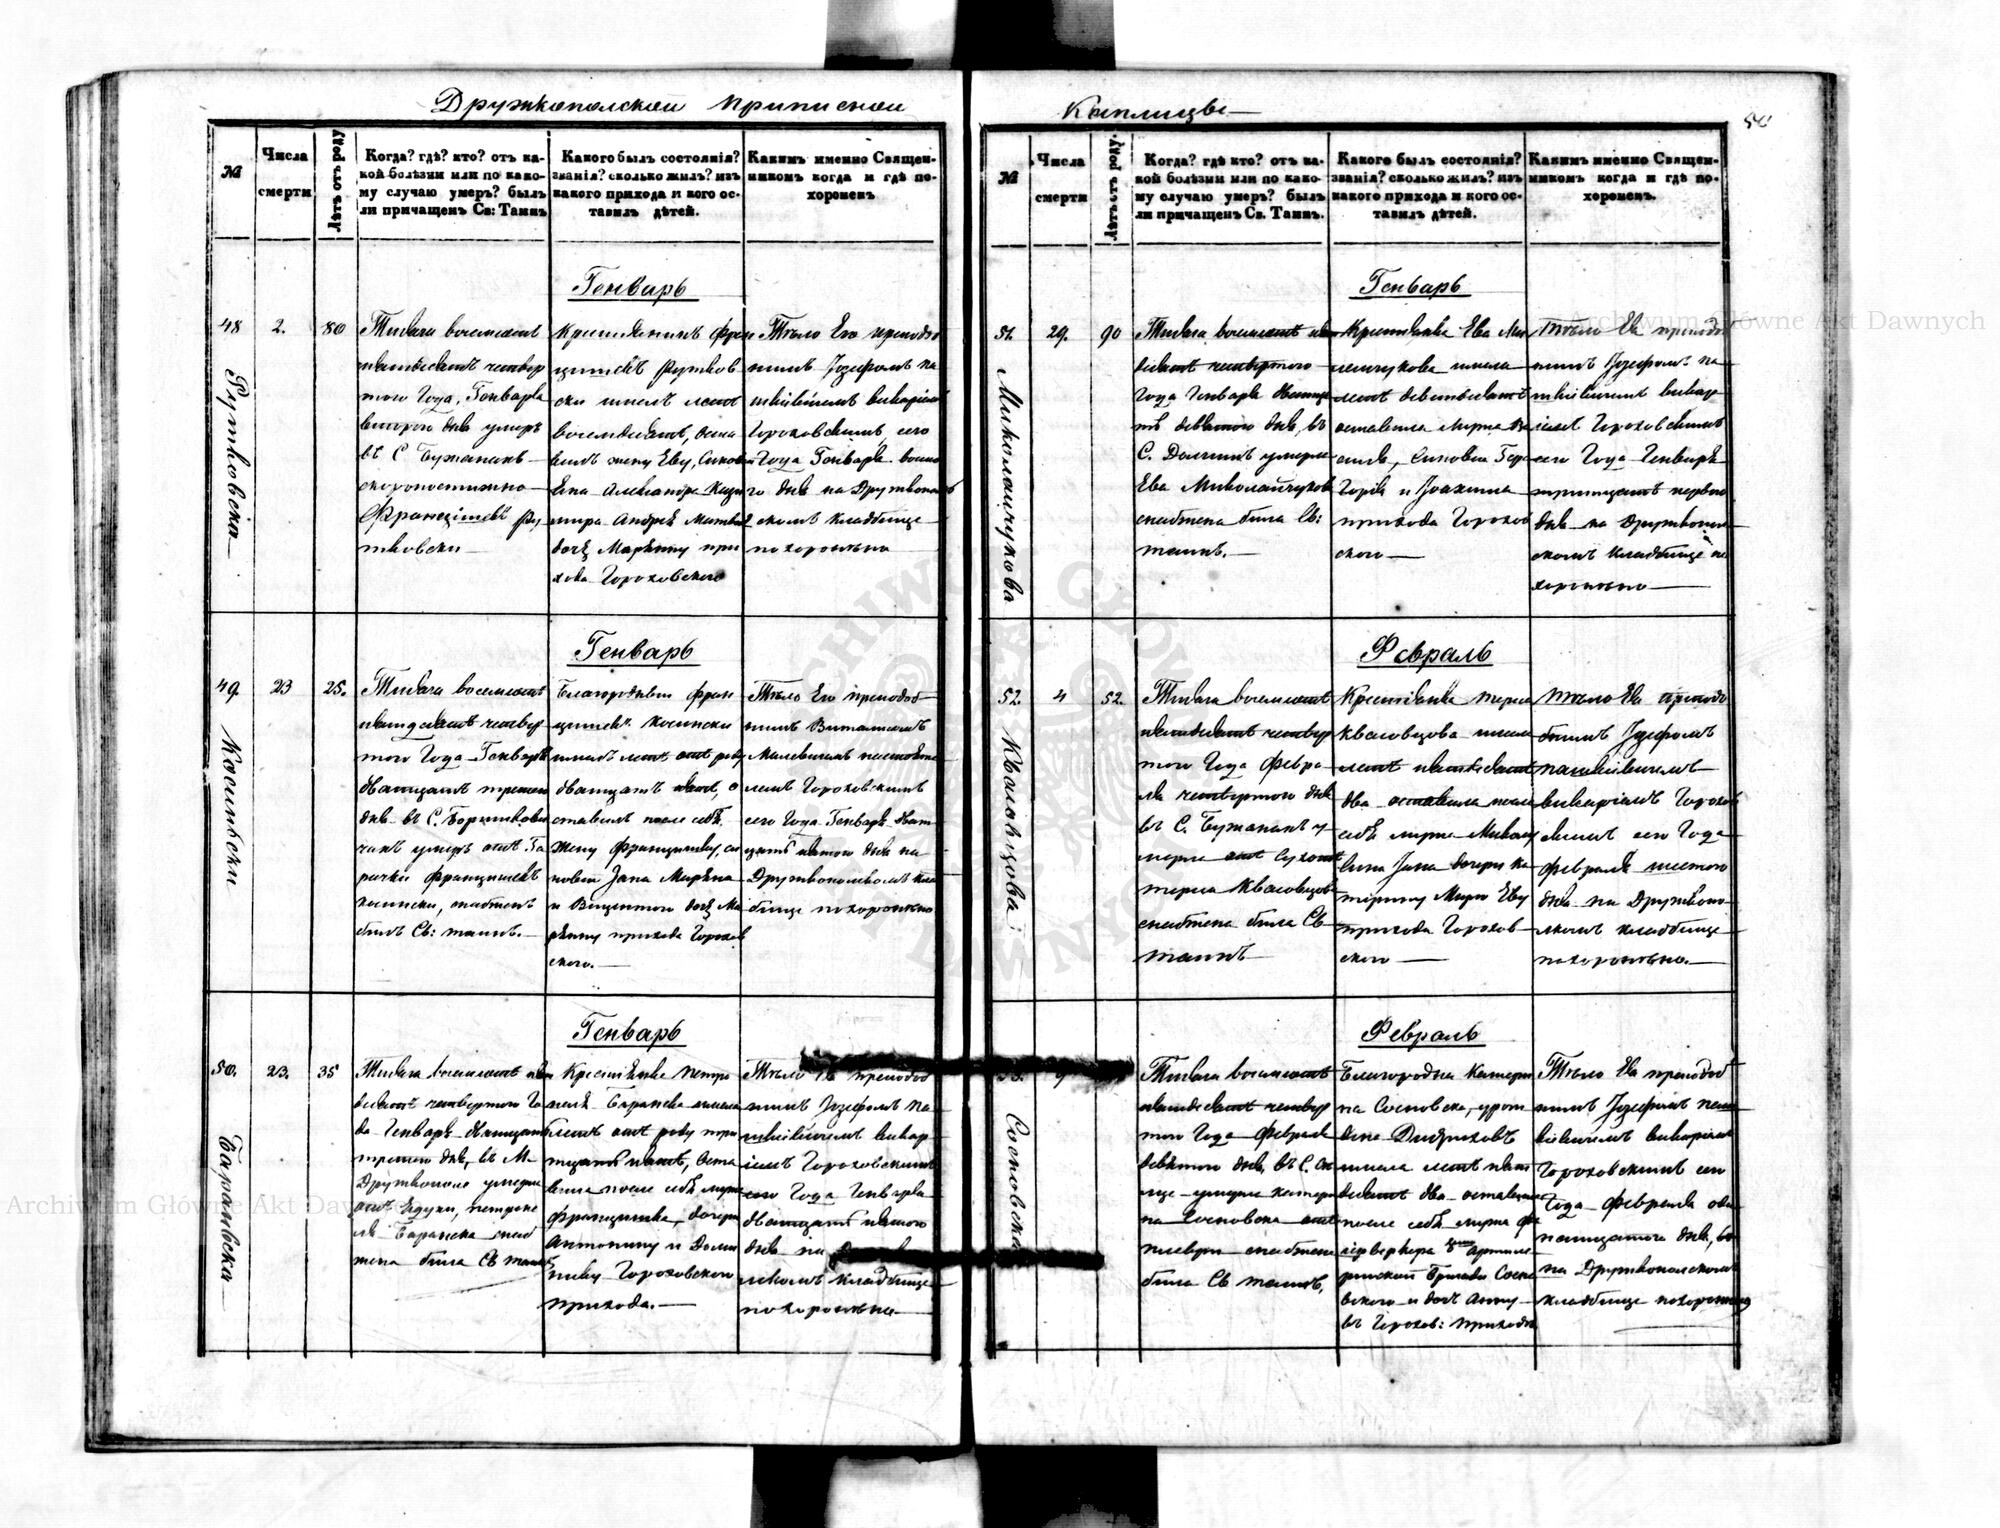 Дружкополской приписной
Каплицы
50
№
Числа
смерти
Лѣтъ отъ роду
Когда? гдѣ? кто? отъ ка-
кой болѣзни или по како-
му случаю умеръ? былъ
ли причащенъ Св: Таинъ
Какого былъ состоянія?
званія? сколько жилъ? изъ
какого прихода и кого ос-
тавилъ дѣтей.
Какимъ именно Священ-
никомъ когда и гдѣ по-
хороненъ
Генварь
48
2.
80
Рутковски
Тисяча восемсотъ
пятдесятъ четвер
того Года, Генваря
второго дня умеръ
въ С Бужанахъ
скоропостижно
Францишекъ Ру
тковски
Крестянинъ Фран
цишекъ Рутков
ски имелъ летъ
восемдесятъ, оста
вилъ жену Еву, Синов
Александра Кази
мира Андрея Матвея
дочь Маряну при
хода Гороховского
Тѣло Его преподоб
нимъ Іозефомъ Па
викаріемъ
Гороховскимъ, сего
Года Генваря
го дня на Дружкопол
скомъ Кладбище
похоронено
Генварь
49.
23
25.
Косински
Тисяча восемсотъ
пятдесятъ четвер
того Года Генваря
двадцатъ третего
дня въ С.
чахъ умеръ отъ Го
рячки Францишекъ
Косински, снабженъ
билъ Св: таинъ.
Благородный Фран
цишекъ Косински
имелъ летъ отъ роду
двадцатъ пятъ, о
ставилъ после себя
жену Францишку, си
нов Яна Маряна
и Винцентого дочь Ма
ряну прихода Горохов
ского.
Тѣло Его преподоб
нимъ Виталисомъ
настояте
лемъ Гороховскимъ
сего Года Генваря двад
цатъ пятого дня на
Дружкополскомъ Кла
бище похоронено
Генварь
50.
23.
35
Баранвска
Тисяча восемсотъ пят
десятъ четвертого Го
да Генваря двадцатъ
третого дня, въ М.
Дружкополе умерла
отъ Петроне
ля Баранска снаб
жена била Св таинъ
Крестянка Петро
неля Баранска имела
летъ отъ роду три
тцатъ пятъ, оста
вила после себя мужа
Францишка, дочери
Антонину и Доми
нику Гороховского
прихода.
Тѣло Ея преподоб
нимъ Іозефомъ Па
викар
іемъ Гороховскимъ
сего Года Генваря
двадцатъ пятого
дня на
скомъ кладбище
похоронена
№
Числа
смерти
Лѣтъ отъ роду.
Когда? гдѣ? кто? отъ ка-
кой болѣзни или по како-
му случаю умеръ? былъ
ли причащенъ Св. Таинъ.
Какого былъ состоянія?
званія? сколько жилъ? изъ
какого прихода и кого ос-
тавилъ дѣтей.
Какимъ именно Священ-
никомъ когда и гдѣ по-
хороненъ.
Генварь
51.
29.
90
Миколайчукова
Тисяча восемсотъ пят
десятъ четвертого
Года Генваря двадца
тъ девятого дня, въ
С. умерла
Ева Миколайчуков
снабжена била Св:
таинъ.
Крестянка Ева Ми
колайчукова имела
летъ девятдесятъ
оставила мужа
Синовей
и Іоахима
прихода Горохов
ского
Тѣло Ея преподоб
нимъ Іозефомъ Па
викар
іемъ Гороховскимъ
сего Года Генваря
тритцатъ первого
дня на Дружкопол
скомъ Кладбище по
хоронено
Февраль
52.
4
52.
Квасовцова
Тисяча восемсотъ
пятдесятъ четвер
того Года Февра
ля четвертого дня
въ С. Бужанахъ у
мерла отъ Сухотъ
Тереса Квасовцова
снабжена била Св
таинъ
Крестянка Тереса
Квасовцова имела
летъ пятдесятъ
два оставила после
себя мужа Миколу
сина Яна дочери Ка
терину Марю Еву
прихода Горохов
ского
Тѣло Ея преподо
бнимъ Іозефомъ
викаріемъ Горохов
скимъ сего Года
Февраля шестого
дня на Дружкопо
лскомъ кладбище
похоронена.
Февраль
53.
9
Сосновска
Тисяча восемсотъ
пятдесятъ четвер
того Года Февраля
девятого дня, въ С.
умерла Катери
на Сосновска отъ
плеври снабжена
била Св таинъ,
Благородна Катери
на Сосновска, урож
дена
имела летъ пят
десятъ два оставила
после себя мужа
фейерверкера артиле
рийской Бригади Сосно
вского и дочъ Анну
въ Горохов: приходе
Тѣло Ея преподоб
нимъ Іозефомъ
викаріемъ
Гороховскимъ сего
Года Февраля
дня,
на Дружкополскомъ
кладбище похоронена
Archiwum Główne Akt Dawnych
Archiwum Główne Akt Dawnych